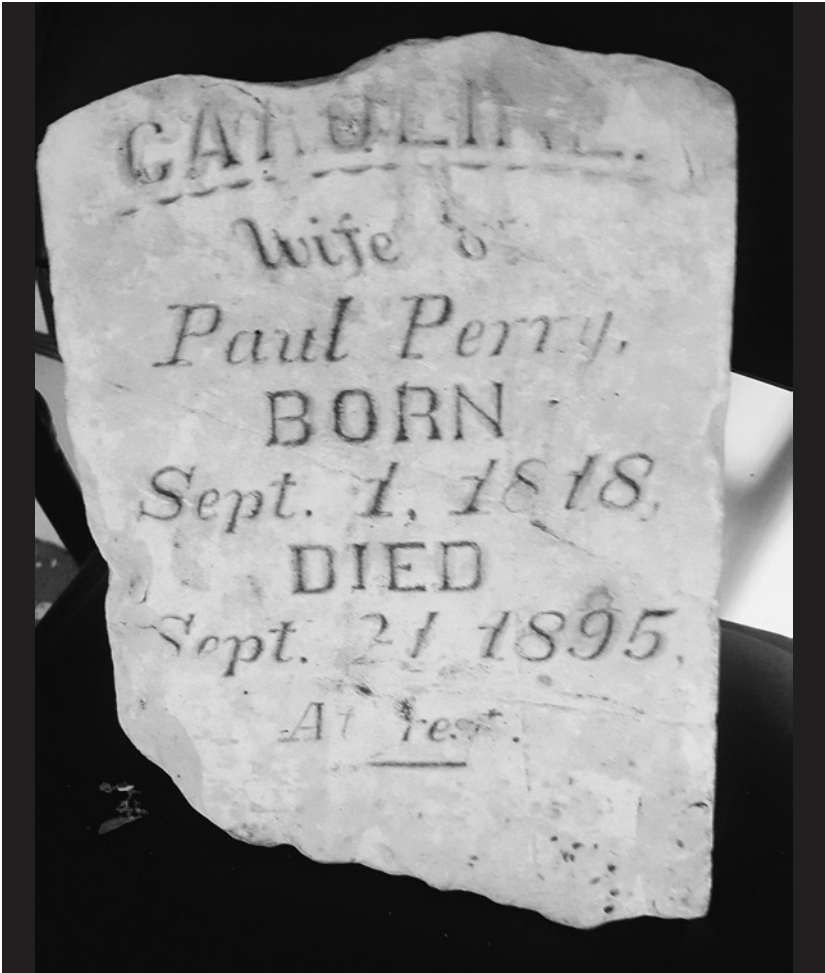 CAROLINE.
Wife o
Paul Perry,
BORN
Sept. 1, 1818,
DIED
Sept. 21 1895.
At rest.